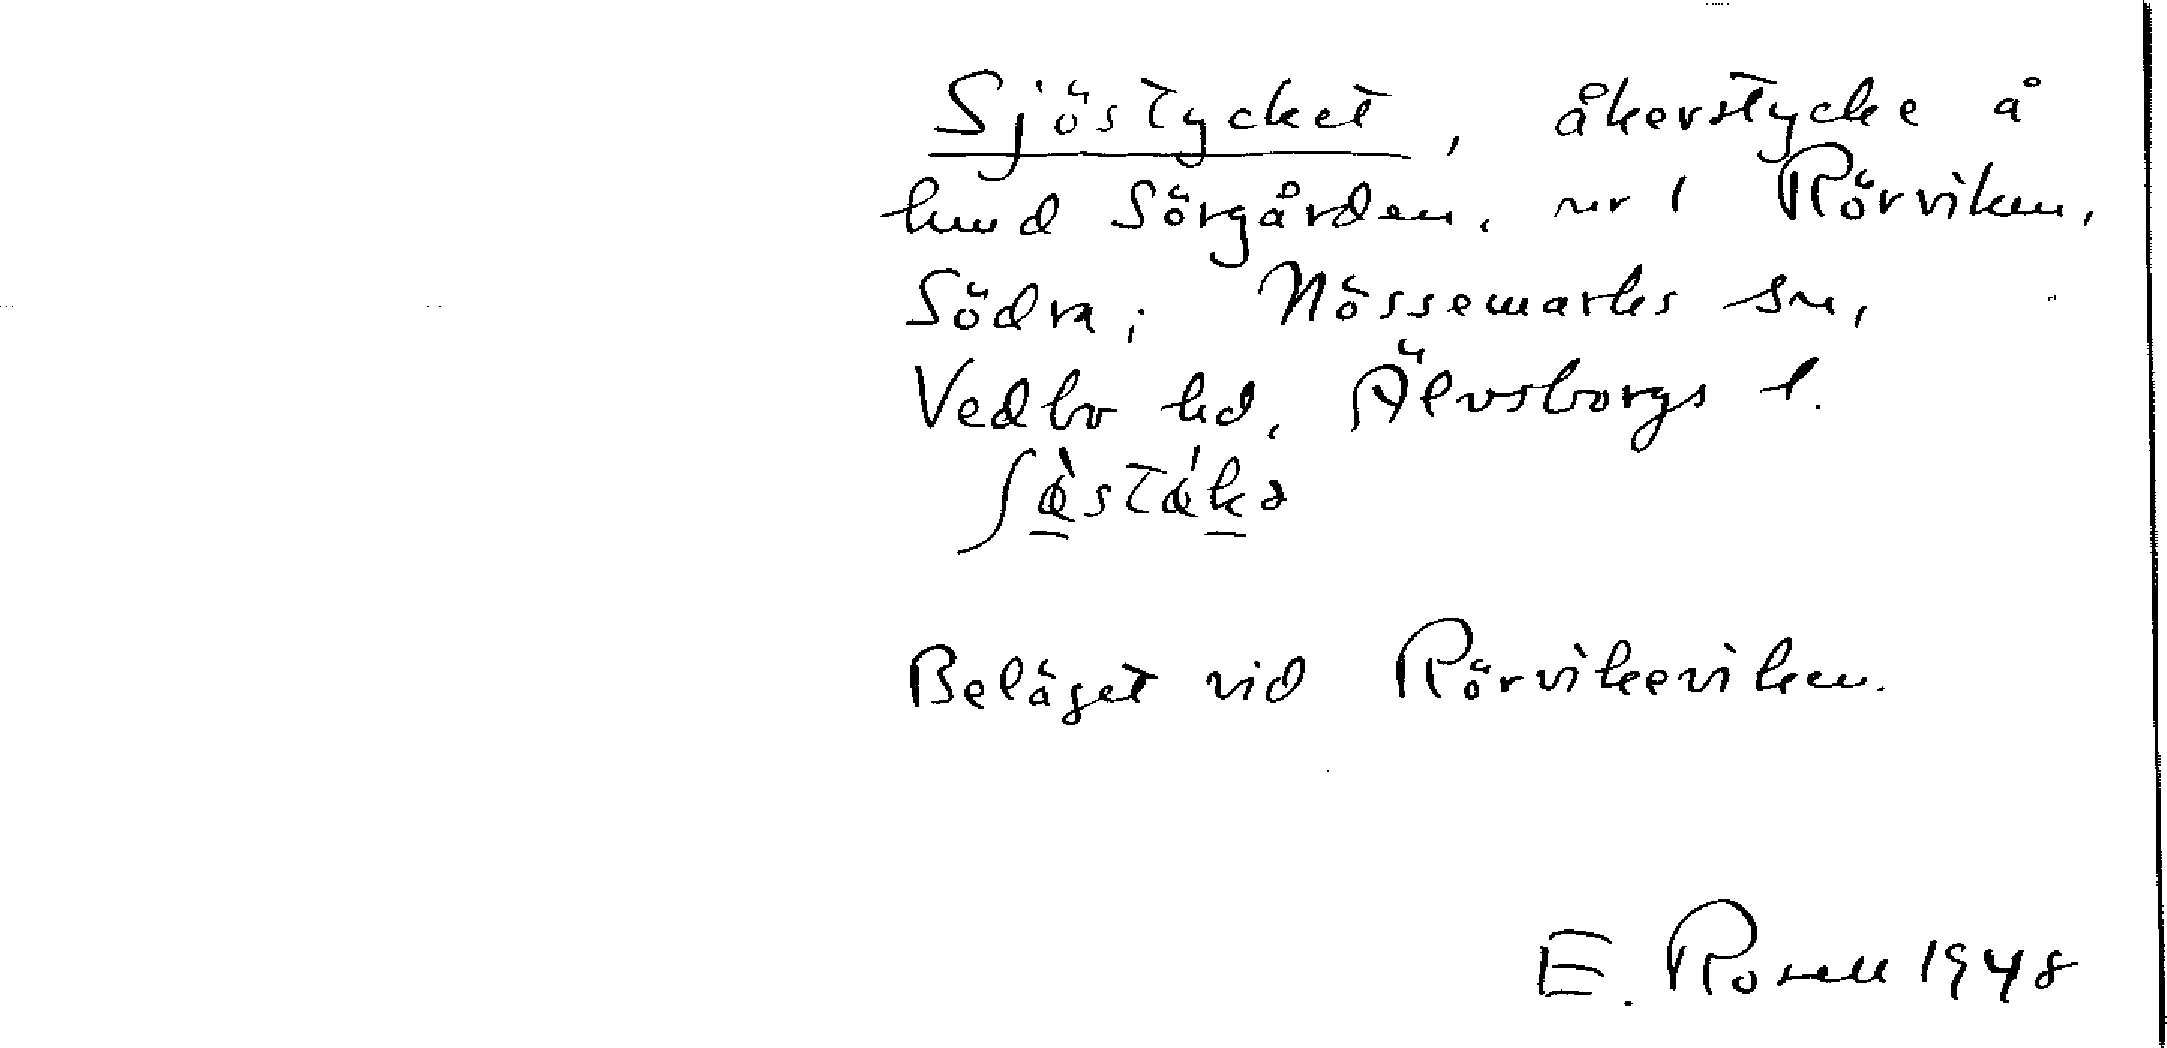 Sjöstycket, åkerstycke å
hmd Sörgården, nr 1 Rörviken,
Södra; Nössemarks sn,
Vedbo hd, Älvsborgs l.
Beläget vid Rörvikeviken.
E. Rosell 1948